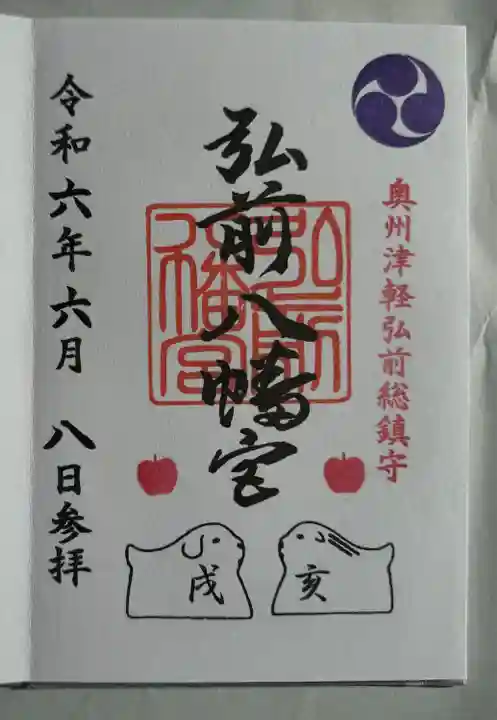 奥州津軽弘前総鎮守
弘前八幡宮
弘前八幡宮
令和六年六月 八日参拝
戌
亥